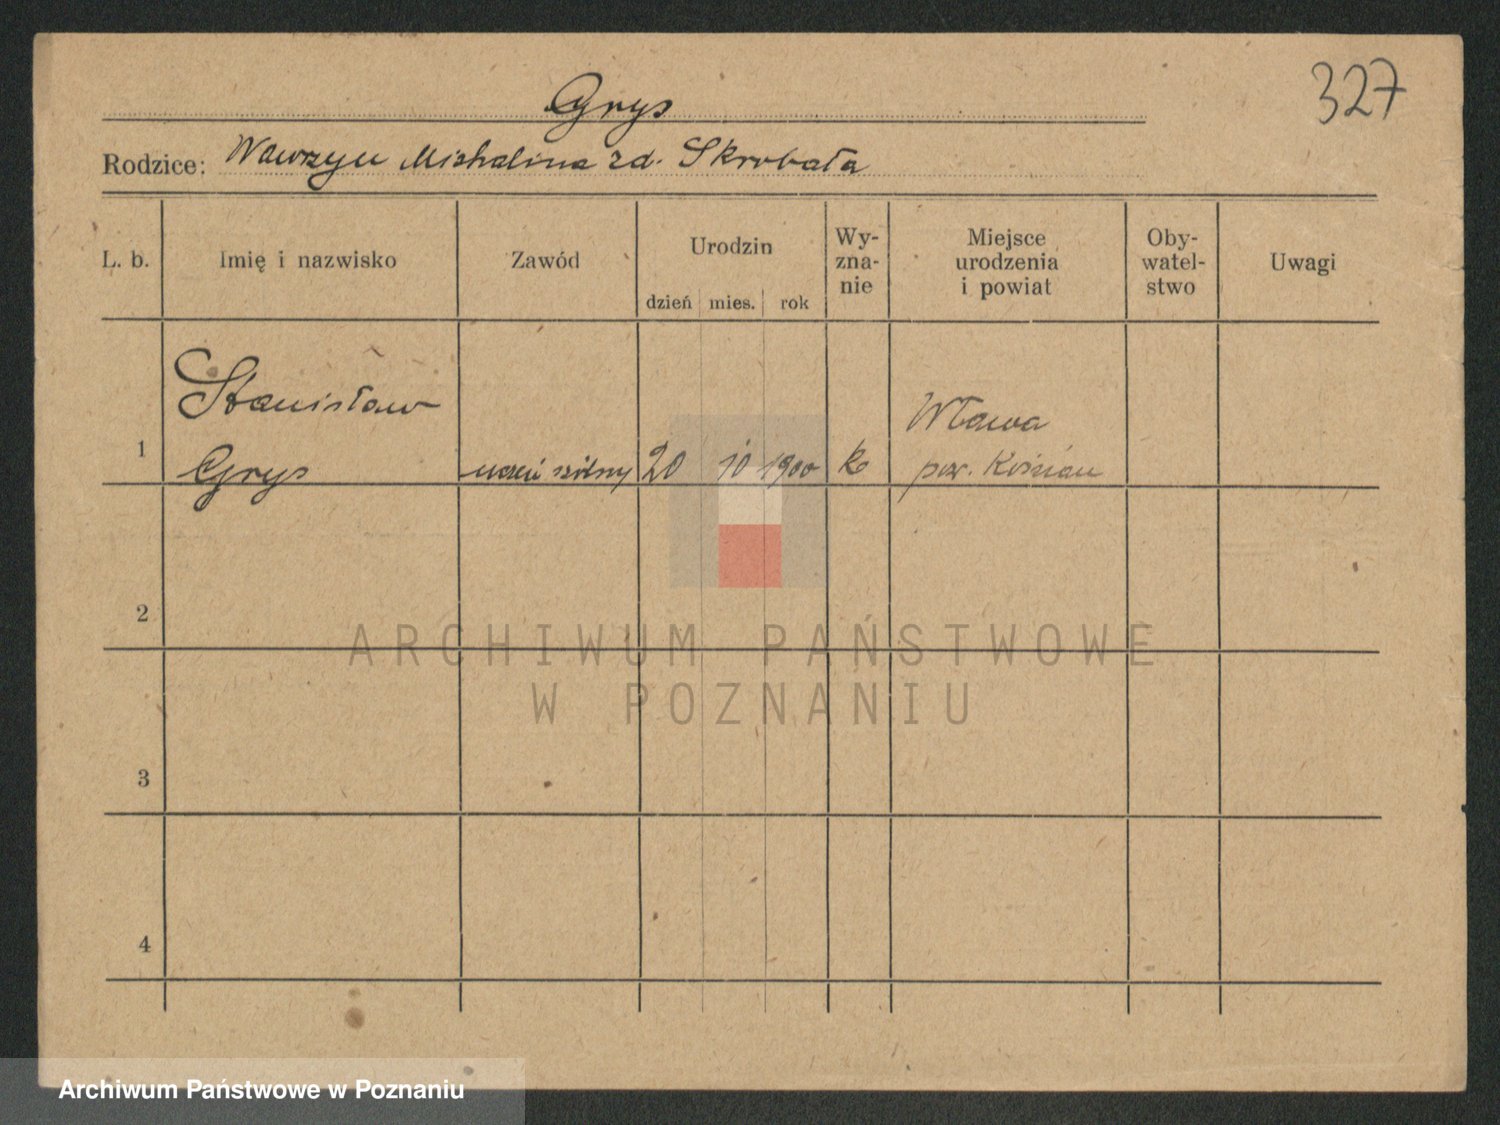 327
Grys
Rodzice: Wawrzyn Michalina zd. Skrobała
L. b. Imię i nazwisko Zawód Urodzin Wy-zna-nie Miejsce urodzenia i powiat Oby-watel-stwo Uwagi
dzień mies. rok
Stanisław
Wława
1 Grys uczeń szkolny 20 10 1900 k pow. Kościan
2
ARCHIWUM PAŃSTWOWE
W POZNANIU
3
4
Archiwum Państwowe w Poznaniu